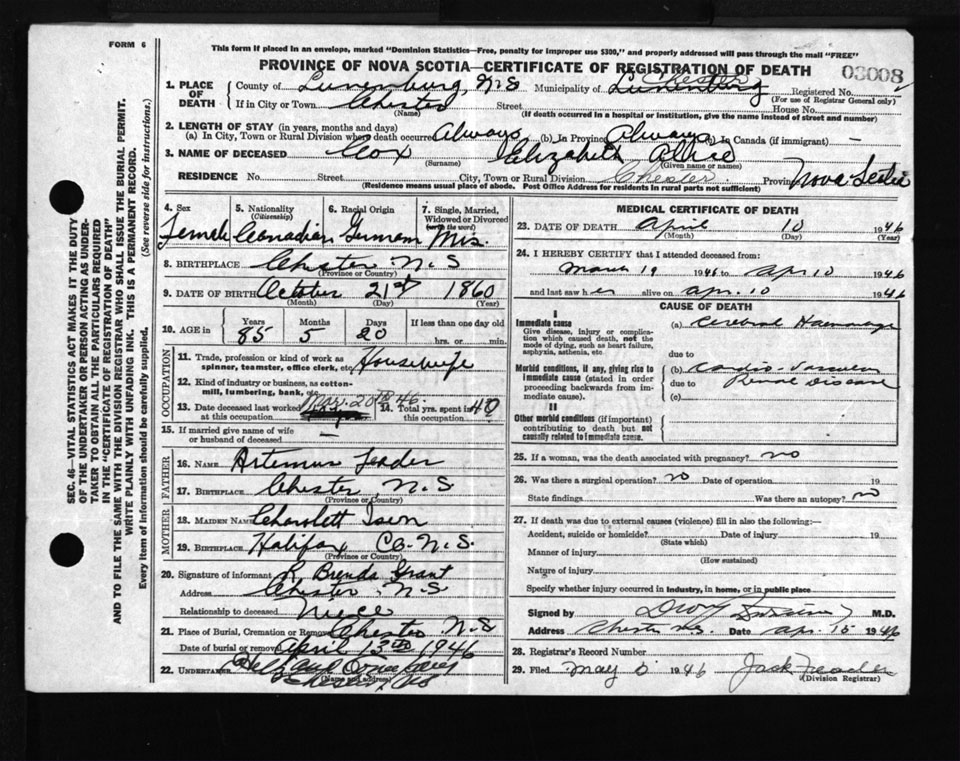 FORM 6
This form if placed in an envelope, marked "Dominion Statistics—Free, penalty for improper use $300," and properly addressed will pass through the mail "FREE"
PROVINCE OF NOVA SCOTIA—CERTIFICATE OF REGISTRATION OF DEATH
03008
SEC. 46—VITAL STATISTICS ACT MAKES IT THE DUTY
OF THE UNDERTAKER OR PERSON ACTING AS UNDER-
TAKER TO OBTAIN ALL THE PARTICULARS REQUIRED
IN THE "CERTIFICATE OF REGISTRATION OF DEATH"
AND TO FILE THE SAME WITH THE DIVISION REGISTRAR WHO SHALL ISSUE THE BURIAL PERMIT.
WRITE PLAINLY WITH UNFADING INK. THIS IS A PERMANENT RECORD.
Every item of information should be carefully supplied. (See reverse side for instructions.)
1. PLACE OF DEATH
County of Lunenburg, N.S Municipality of Chester Lunenburg Registered No.
(For use of Registrar General only)
If in City or Town Chester Street House No.
(Name) (If death occurred in a hospital or institution, give the name instead of street and number)
2. LENGTH OF STAY (in years, months and days)
(a) In City, Town or Rural Division where death occurred Always (b) In Province Always (c) In Canada (if immigrant) —
3. NAME OF DECEASED Cox Elizabeth Allice
(Surname) (Given name or names)
RESIDENCE No. Street City, Town or Rural Division Chester Province Nova Scotia
(Residence means usual place of abode. Post Office Address for residents in rural parts not sufficient)
4. Sex Female
5. Nationality (Citizenship) Canadian
6. Racial Origin German
7. Single, Married, Widowed or Divorced (write the word) Mrs.
8. BIRTHPLACE Chester N.S
(Province or Country)
9. DATE OF BIRTH October 21st 1860
(Month) (Day) (Year)
10. AGE in Years 85 Months 5 Days 20 If less than one day old hrs. or min.
OCCUPATION
11. Trade, profession or kind of work as spinner, teamster, office clerk, etc. Housewife
12. Kind of industry or business, as cotton-mill, lumbering, bank, etc.
13. Date deceased last worked at this occupation Mar. 20th 46.
14. Total yrs. spent in this occupation 40
15. If married give name of wife or husband of deceased —
FATHER
16. NAME Artemus
17. BIRTHPLACE Chester N.S
(Province or Country)
MOTHER
18. MAIDEN NAME Charolett
19. BIRTHPLACE Halifax Co. N.S.
(Province or Country)
20. Signature of informant Brenda Grant
Address Chester N.S
Relationship to deceased Niece
21. Place of Burial, Cremation or Removal Chester N.S
Date of burial or removal April 13th 1946
22. UNDERTAKER
(Name and address)
Chester, NS
MEDICAL CERTIFICATE OF DEATH
23. DATE OF DEATH April 10 1946
(Month) (Day) (Year)
24. I HEREBY CERTIFY that I attended deceased from:
March 19 1946 to Apr 10 1946
and last saw her alive on apr. 10 1946
CAUSE OF DEATH
I
Immediate cause
Give disease, injury or complication which caused death, not the mode of dying, such as heart failure, asphyxia, asthenia, etc
(a) Cerebral Haemorrage
due to
Morbid conditions, if any, giving rise to Immediate cause (stated in order proceeding backwards from immediate cause).
(b) Cardio-Vascular
due to Renal Disease
(c)
II
Other morbid conditions (if important) contributing to death but not causally related to Immediate cause.
25. If a woman, was the death associated with pregnancy? no
26. Was there a surgical operation? no Date of operation 19
State findings Was there an autopsy? no
27. If death was due to external causes (violence) fill in also the following:—
Accident, suicide or homicide? Date of injury 19
(State which)
Manner of injury
(How sustained)
Nature of injury
Specify whether injury occurred in Industry, in home, or in public place
Signed by M.D.
Address Chester N.S. Date apr. 15 1946
28. Registrar's Record Number
29. Filed May 1946 Jack
(Division Registrar)